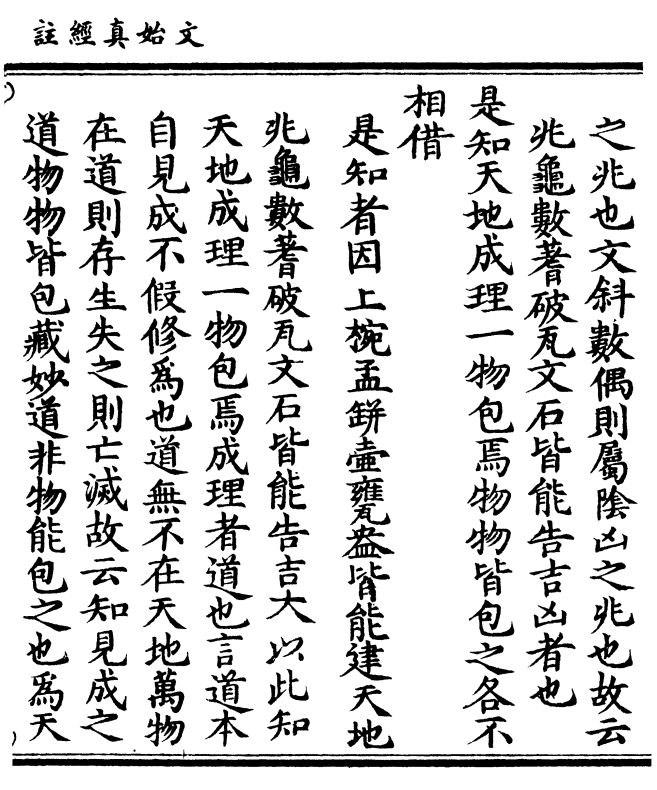 文始真經註
之兆也文斜數偶則屬陰凶之兆也故云
兆龜數蓍破瓦文石皆能告吉凶者也
是知天地成理一物包焉物物皆包之各不
相借
是知者因上椀盂缾壷甕盎皆能建天地
兆龜數蓍破瓦文石皆能告吉大以此知
天地成理一物包焉成理者道也言道本
自見成不假修爲也道無不在天地萬物
在道則存生失之則亡滅故云知見成之
道物物皆包藏妙道非物能包之也爲天